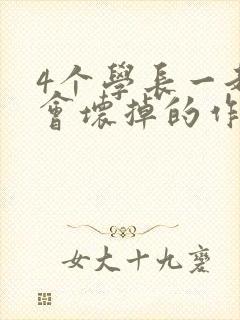 4个學長一
會壞掉的作
女大十九變